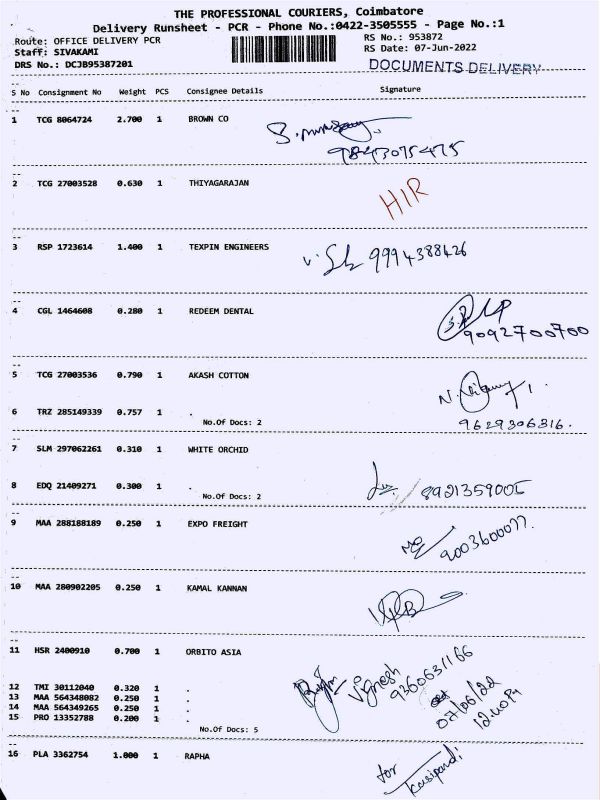 THE PROFESSIONAL COURIERS, Coimbatore
Delivery Runsheet - PCR - Phone No.:0422-3505555 - Page No.:1
Route: OFFICE DELIVERY PCR
RS No.: 953872
Staff: SIVAKAMI
RS Date: 07-Jun-2022
DRS No.: DCJB95387201
DOCUMENTS DELIVERY
S No Consignment No Weight PCS Consignee Details Signature
1 TCG 8064724 2.700 1 BROWN CO
9843075475
2 TCG 27003528 0.630 1 THIYAGARAJAN
HIR
3 RSP 1723614 1.400 1 TEXPIN ENGINEERS
9994388426
4 CGL 1464608 0.280 1 REDEEM DENTAL
9092700700
5 TCG 27003536 0.790 1 AKASH COTTON
6 TRZ 285149339 0.757 1 .
No.Of Docs: 2
9629306316.
7 SLM 297062261 0.310 1 WHITE ORCHID
8 EDQ 21409271 0.300 1 .
No.Of Docs: 2
8921359005
9 MAA 288188189 0.250 1 EXPO FREIGHT
9003600077.
10 MAA 280902205 0.250 1 KAMAL KANNAN
11 HSR 2400910 0.700 1 ORBITO ASIA
Vignesh
9360631166
12 TMI 30112040 0.320 1 .
13 MAA 564348082 0.250 1 .
14 MAA 564349265 0.250 1 .
15 PRO 13352788 0.200 1 .
07/06/22
12.40 PM
No.Of Docs: 5
16 PLA 3362754 1.000 1 RAPHA
for